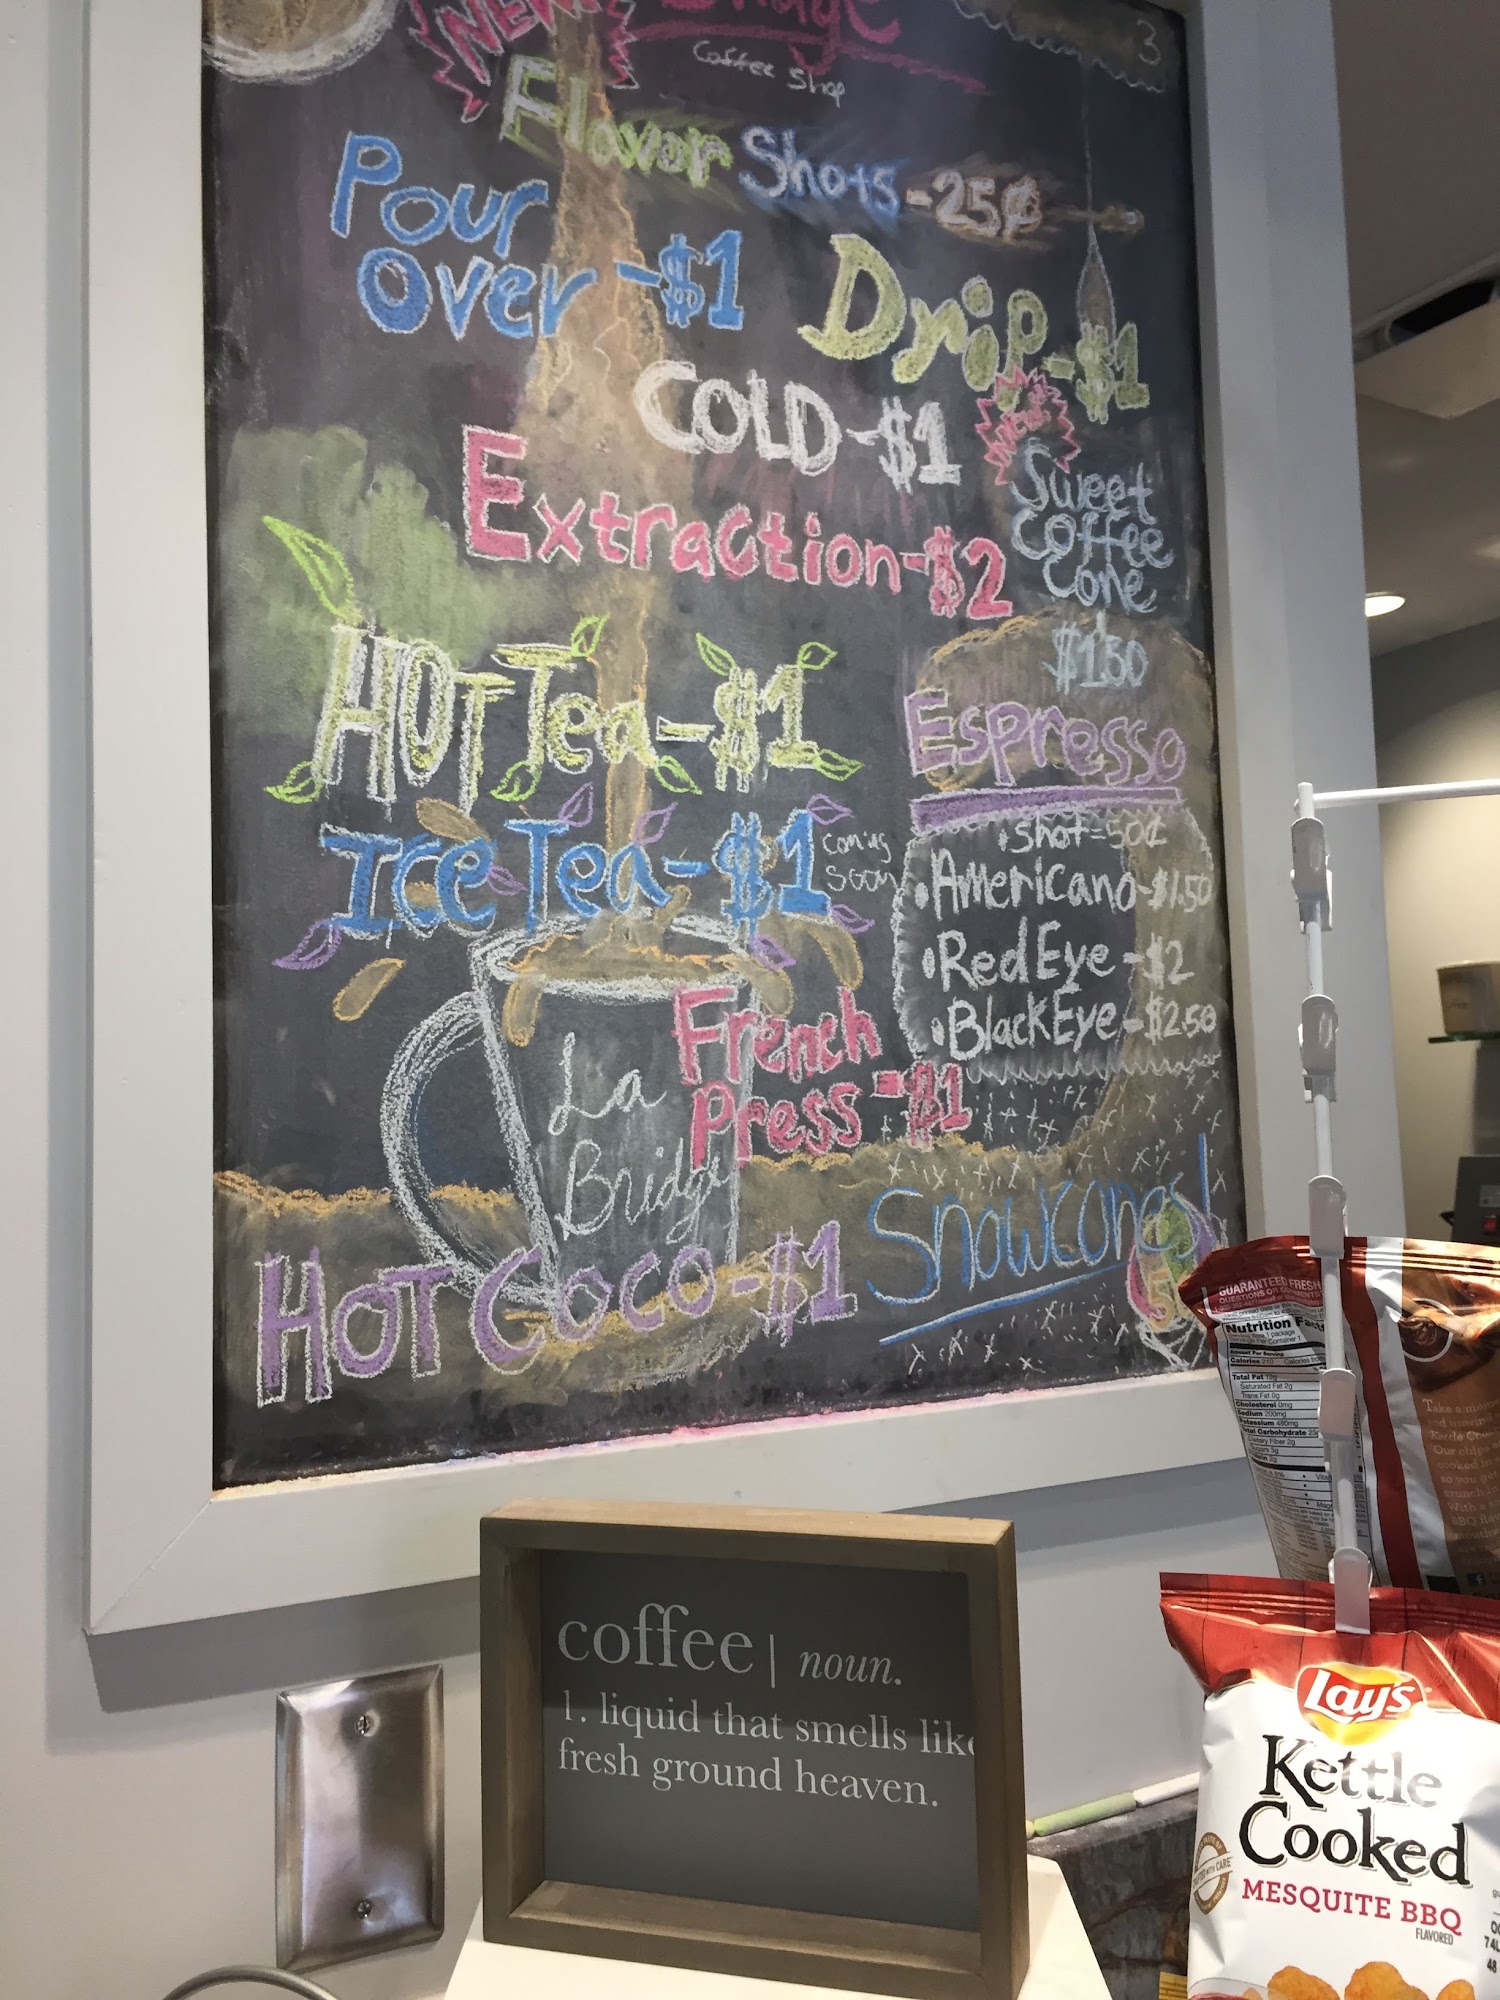 NEW!
Bridge
3
Coffee Shop
Flavor Shots-25¢
Pour
Over-$1
Drip-$1
COLD-$1
Extraction-$2
New!
Sweet
Coffee
Cone
$1.50
HOT Tea-$1
Ice Tea-$1
coming
soon
Espresso
•Shot-50¢
•Americano-$1.50
•Red Eye-$2
•Black Eye-$2.50
French
Press-$1
La
Bridge
HOT Coco-$1
Snowcones!
coffee | noun.
1. liquid that smells like
fresh ground heaven.
GUARANTEED FRESH
Nutrition Fact
Amount Per Serving
Calories 210
Total Fat
Saturated Fat 2g
Trans Fat 0g
Cholesterol 0mg
Sodium 200mg
Potassium 480mg
Total Carbohydrate 23
Dietary Fiber 2g
Lay's
Kettle
Cooked
MESQUITE BBQ
FLAVORED